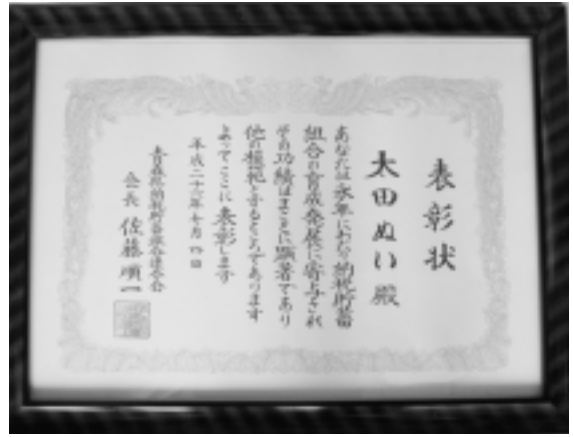 表彰状
大田ぬい殿
あなたは永年にわたり納税貯蓄
組合の育成発展に寄与され
その功績はまことに顕著であり
他の模範とするところであります
よってここに表彰します
平成二十三年七月 日
青森県納税貯蓄組合連合会
会長 佐藤順一